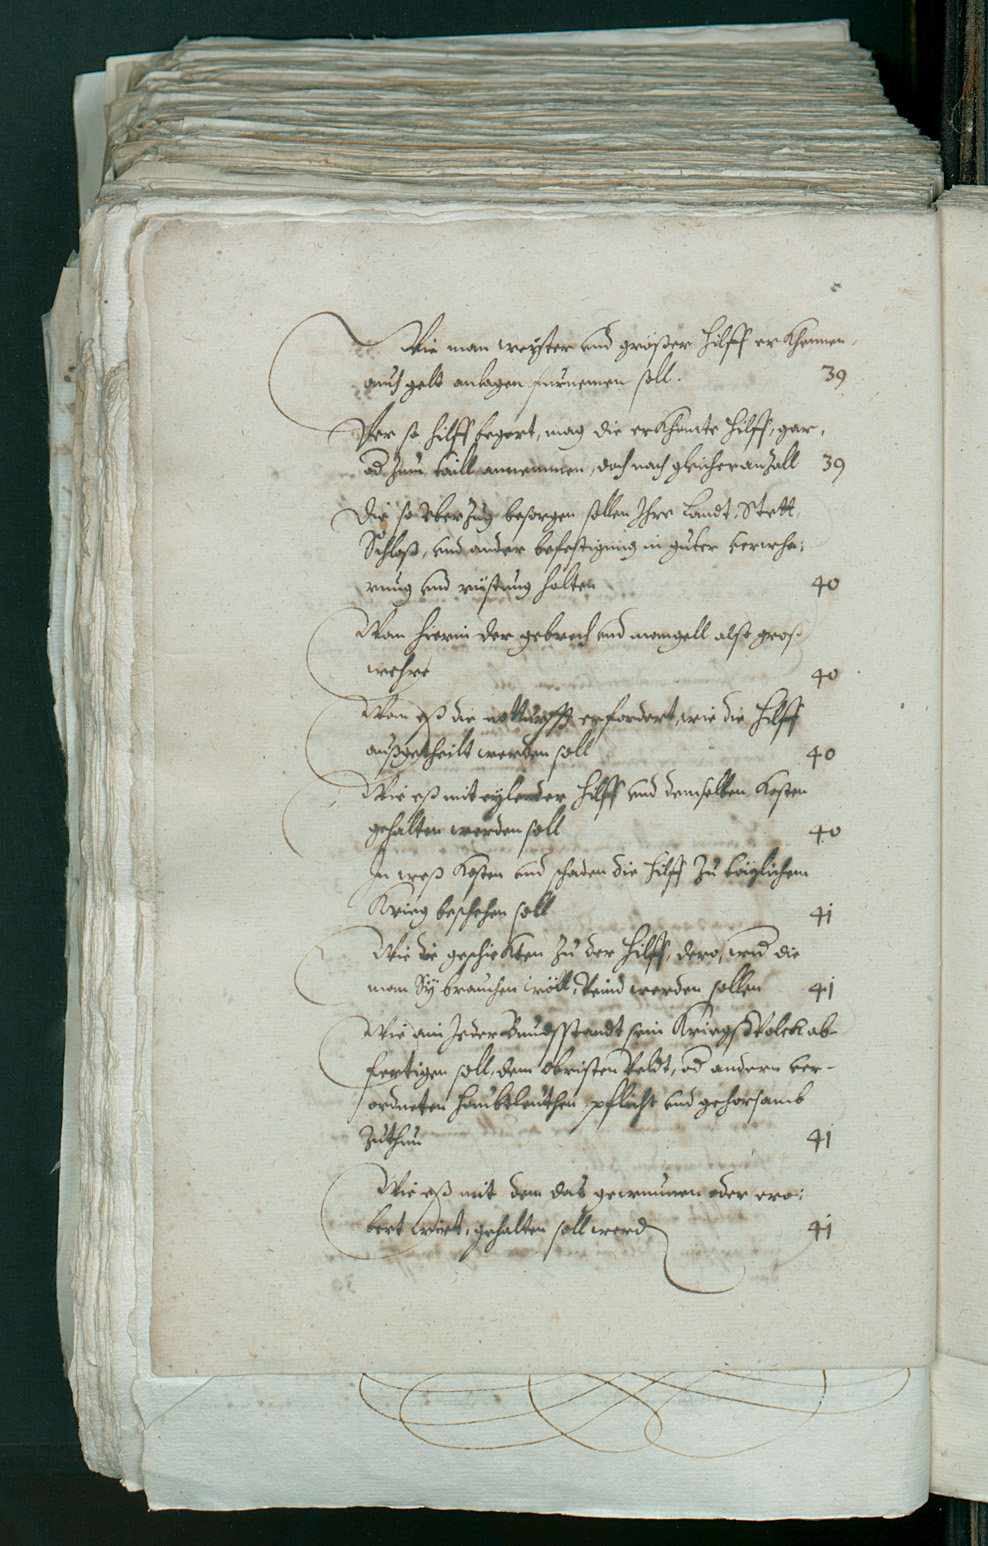 Wie man weytter und grösser hilff erkhennen,
auch gelt anlagen fürnemen soll. 39
Wer so hilff begert, mag die erkhante hilff, gar,
od zum taill annemmen, doch nach gleicher anzall 39
Die so Uberzug besorgen sollen Ihre Landt, Stett,
Schloß, und ander befestigung in guter verwha:
rung und rüstung halten 40
Wan hierin der gebrech und mangell also groß
wehre 40
Wan eß die notturfft erfordert, wie die hilff
außgetheilt werden soll 40
Wie eß mit eylender hilff und demselben Kosten
gehalten werden soll 40
In weß Kosten und schaden die hilff zu täglichem
Krieg beschehen soll 41
Wie die geschickten zu der hilff, dero, und die
man Sy brauchen wöll, Veind werden sollen 41
Wie ain Jeder Bundsstandt sein Kriegßvolck ab-
fertigen soll, dem Obristen Veldt, od andern ver-
ordneten haubtleuthen, pflicht und gehorsamb
zuthun 41
Wie eß mit dem das gewunnen oder ero:
bert wirt, gehalten soll werd 41